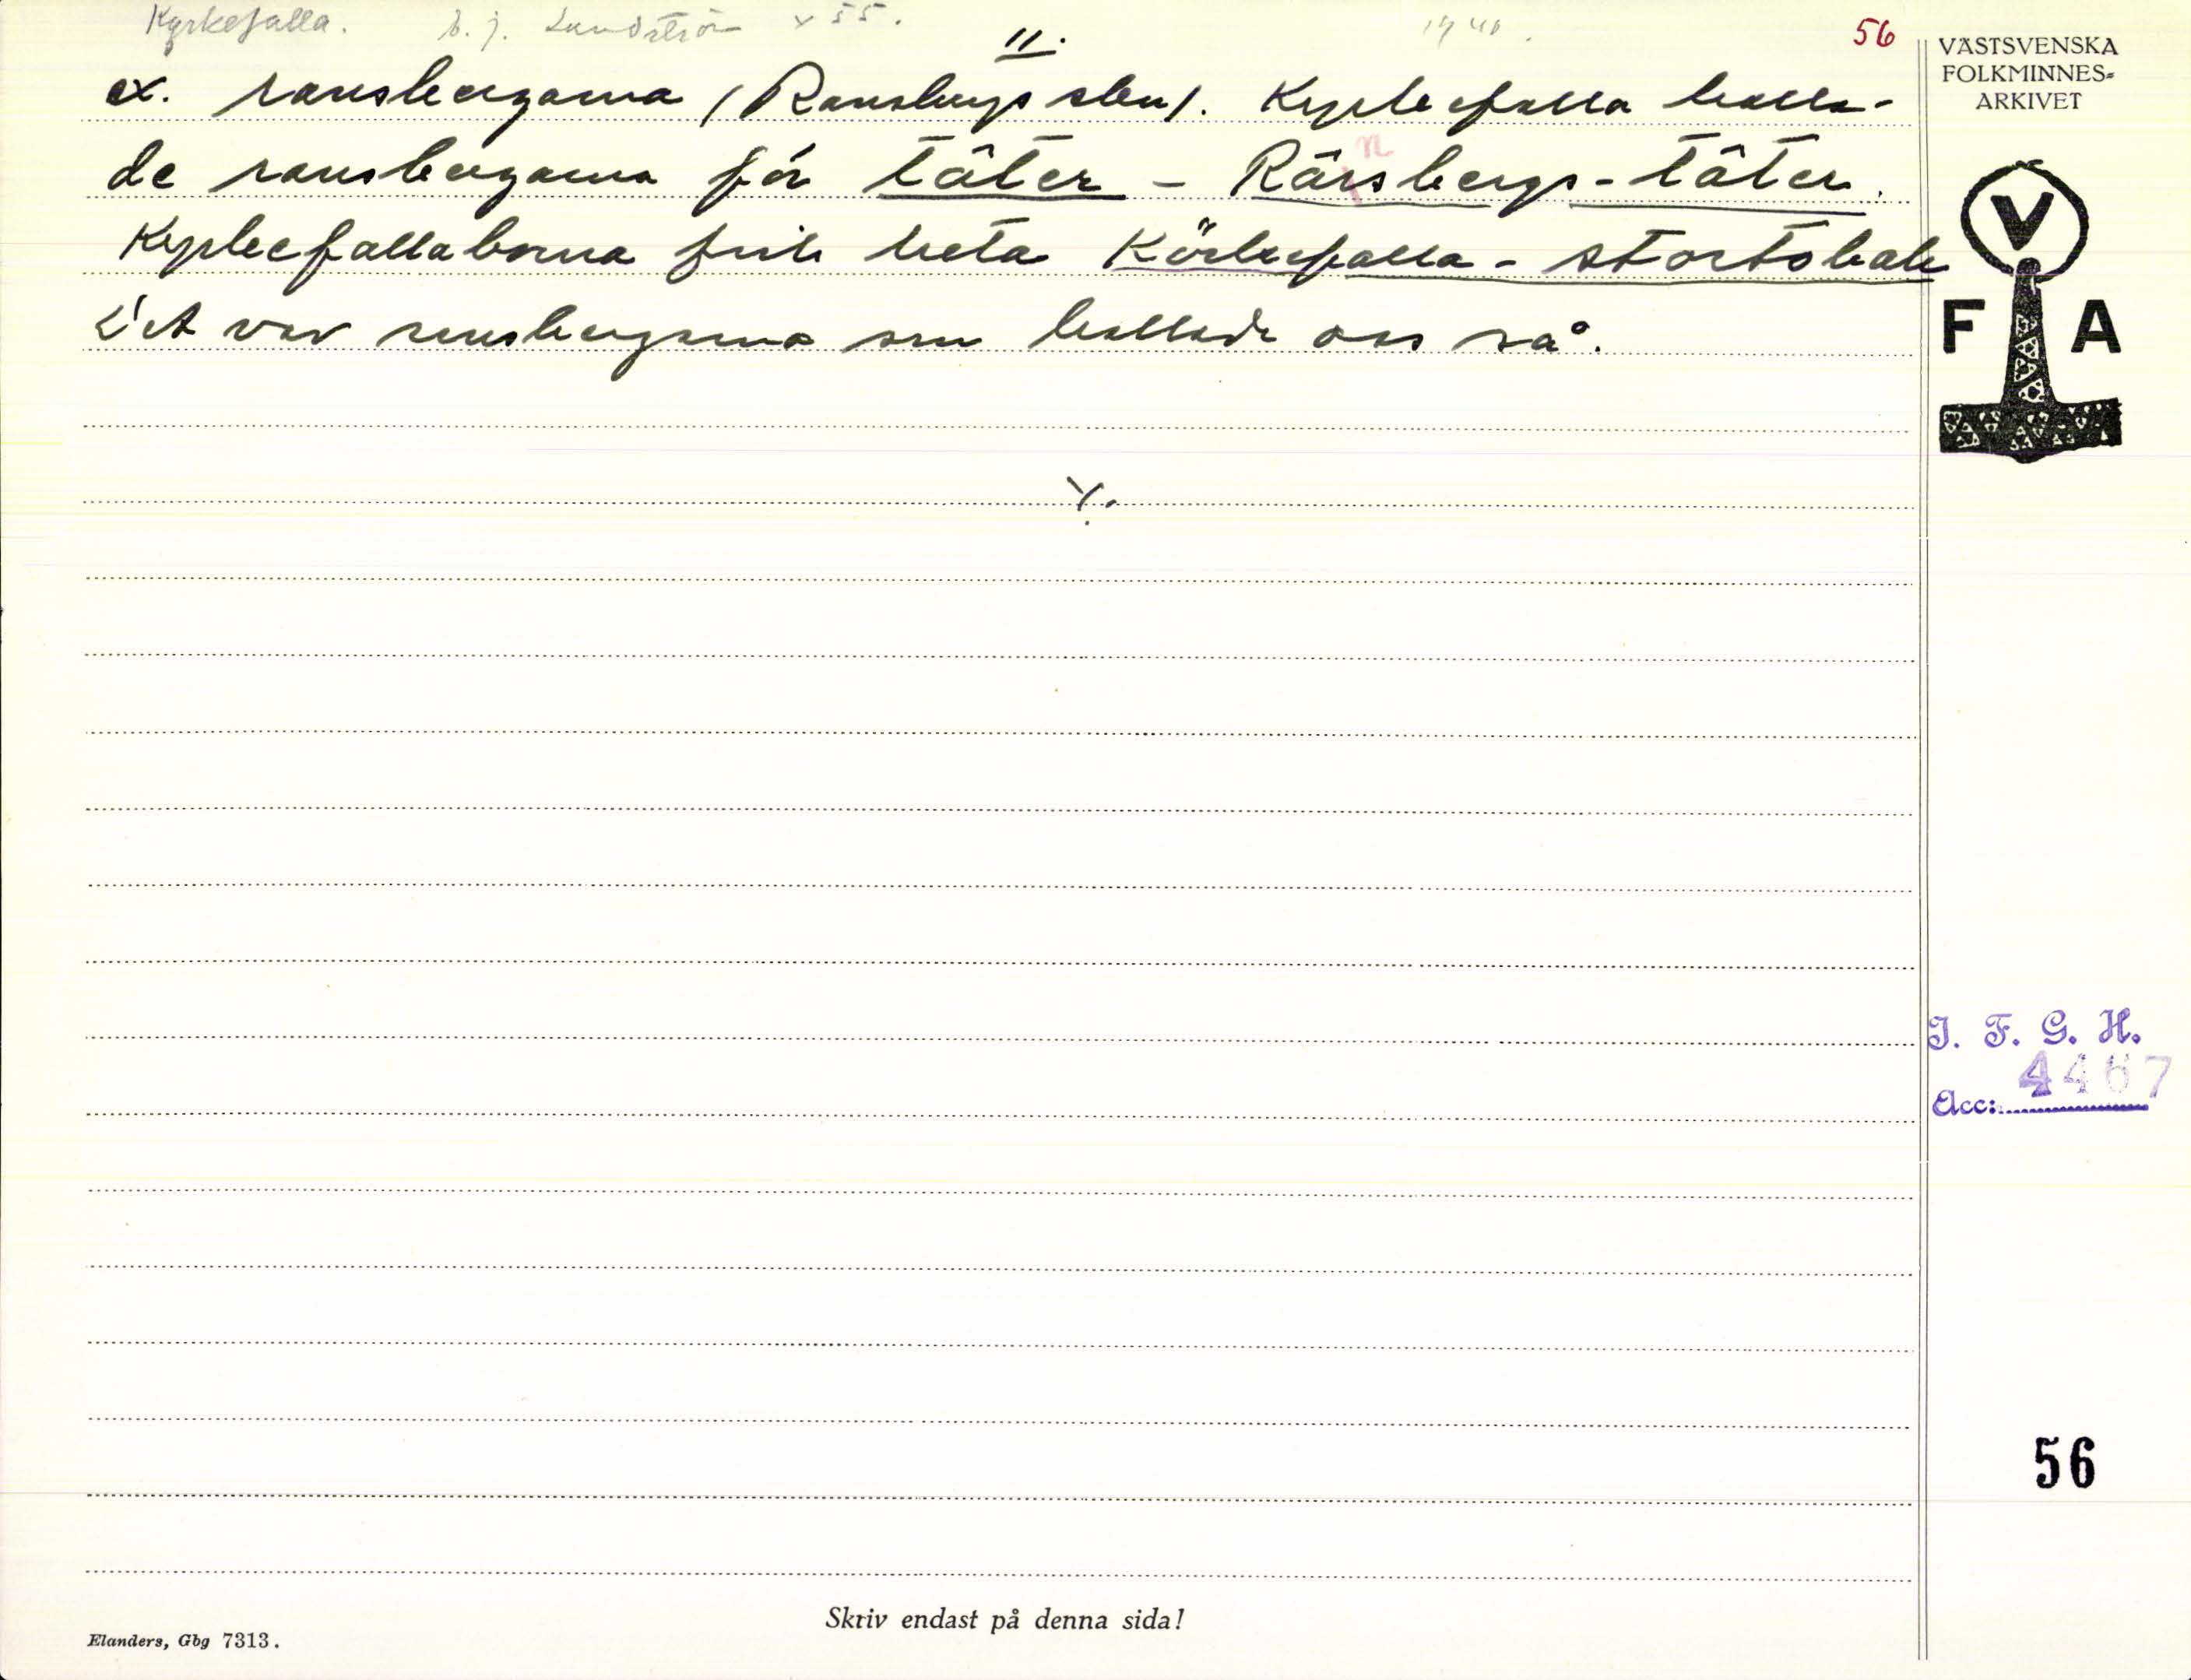 Kyrkefalla. b. j. Landström x 55. 1940.
11.
56
ex. ransbergarna (Ransbergs skn). Kyrkefalla kalla-
de ransbergarna för tåter - Ränsbergs-tåter.
Kyrkefallaborna fick heta Körkefalla-stortobak
Det var ransbergarna som kallade oss så.
Y.
VÄSTSVENSKA
FOLKMINNES=
ARKIVET
V
F A
I. F. G. H.
Acc: 4467
56
Skriv endast på denna sida!
Elanders, Gbg 7313.